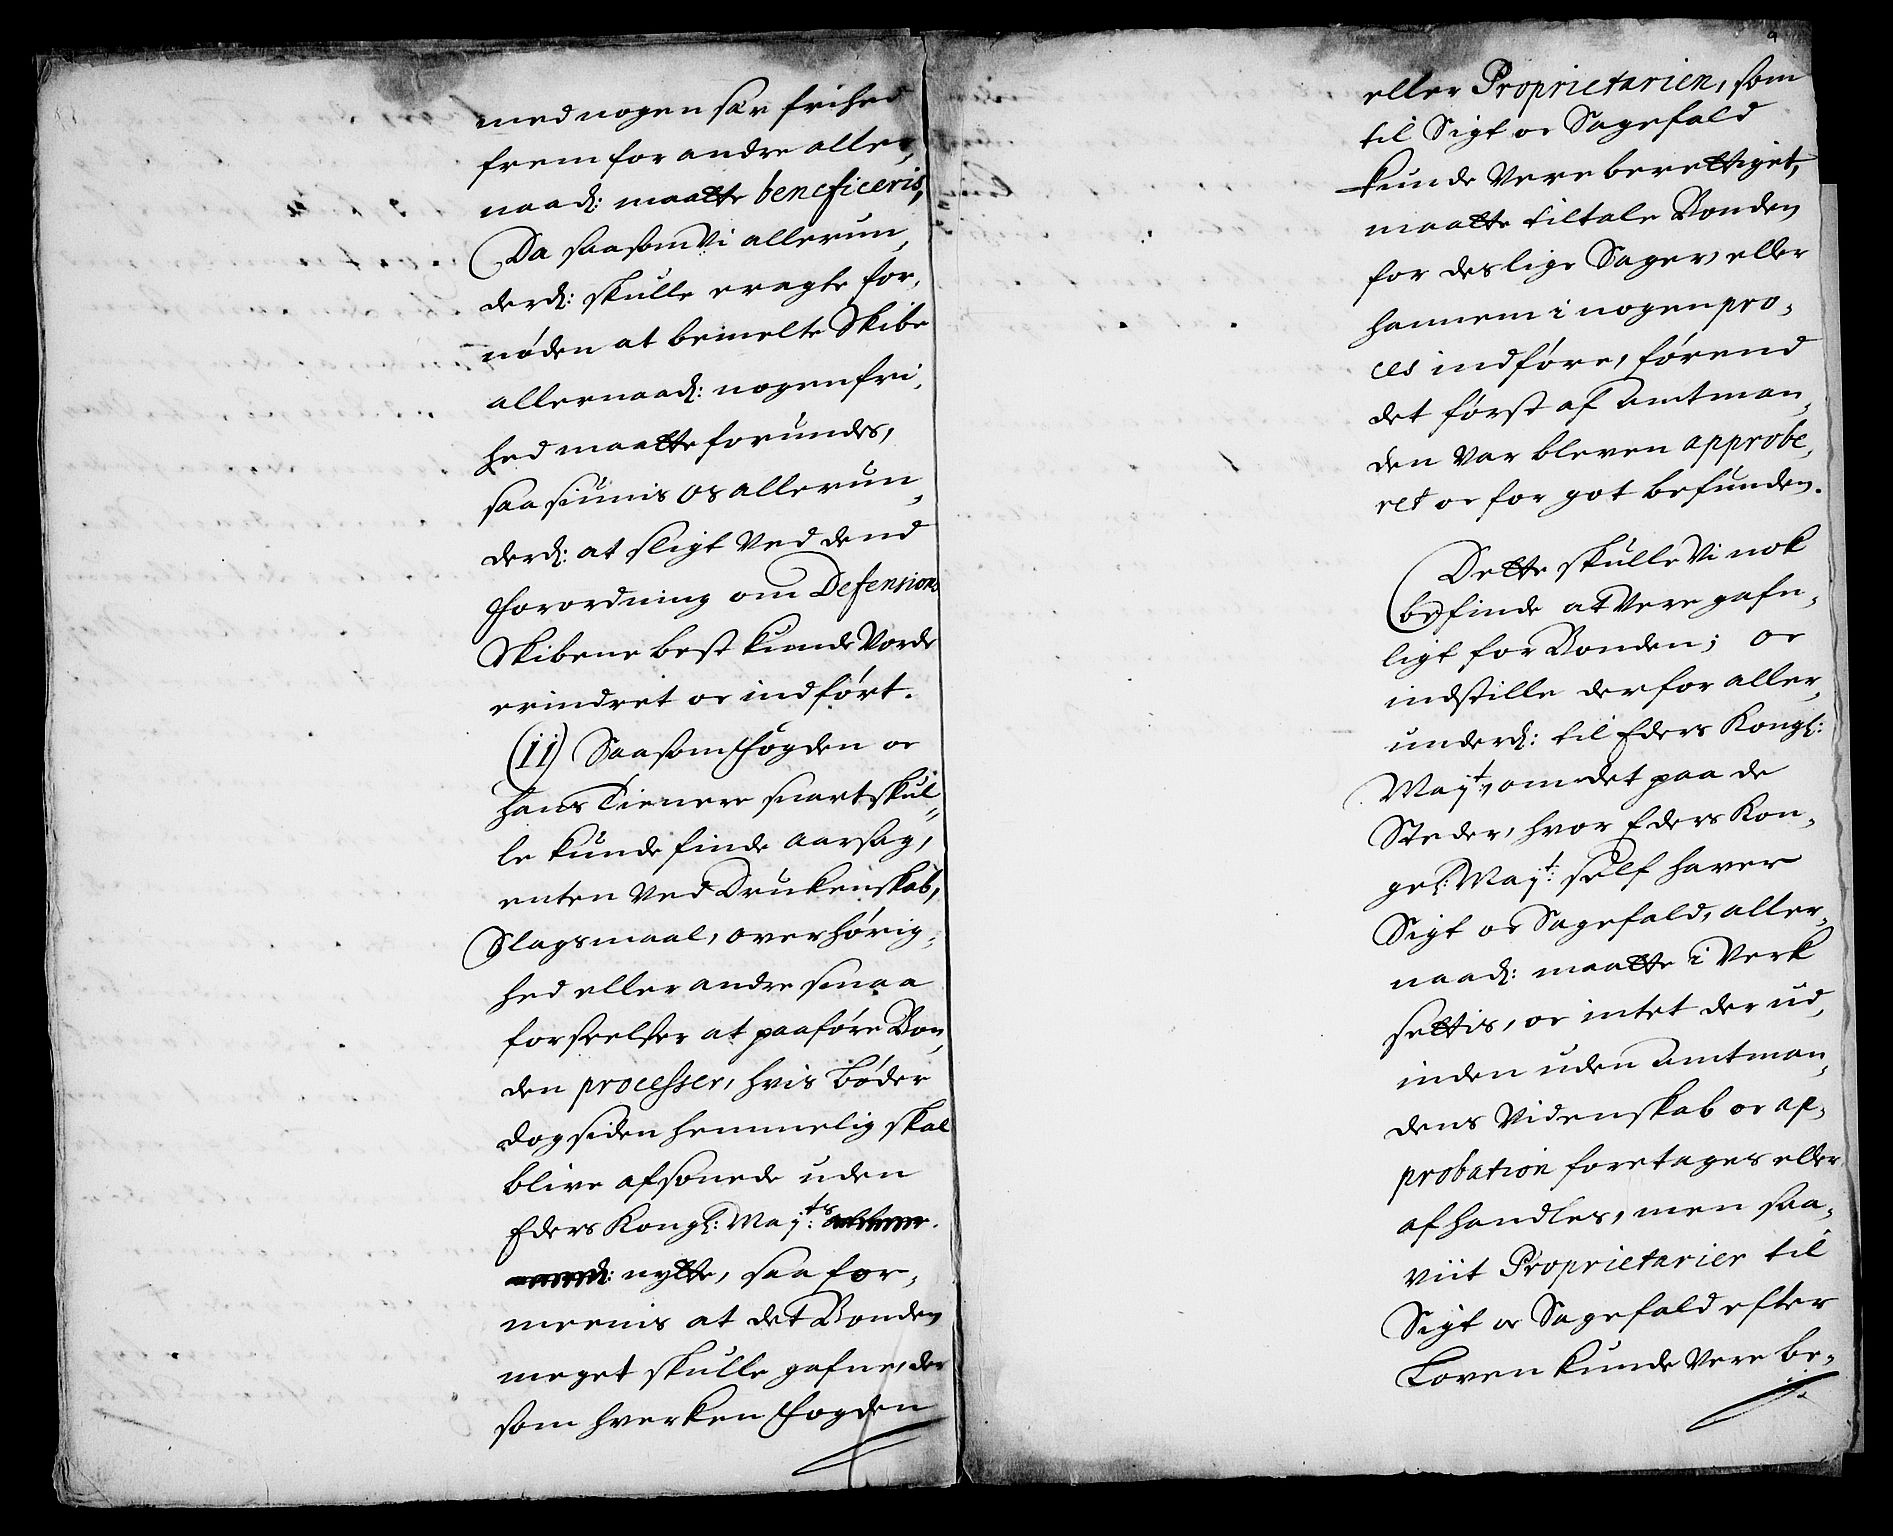 med nogen sær frihed
frem for andre aller,
naadl: maatte beneficeris,
Da saasom Vi allerun,
derdl: skulle eragte for,
nøden at bemelte Skibe
allernaadl: nogen fri,
hed maatte forundes,
saa siunis os allerun,
derdl: at sligt Ved dend
Forordning om Defensions
Skibene best kunde Vorde
erindret oc indført.
(11) Saasom Fogden oc
hans Tienere snart skul=
le kunde finde aarsag,
enten Ved Drukenskab,
Slagsmaal, overhørig,
hed eller andre smaa
forseelser at paaføre Bon,
den processer, hvis bøder
dog siden hemmelig skal
blive afsonede uden
Eders Kongl: Mayts:
nytte, saa for,
meenis at det Bonden
meget skulle gafne, der
som hverken Fogden
9
eller Proprietarien, som
til Sigt oc Sagefald
kunde Vere berettiget,
maatte tiltale Bonden
for deslige Sager, eller
hannem i nogen pro,
ces indføre, førend
det først af Amtman,
den Var bleven approbe,
ret oc for got befunden.
Dette skulle Vi nok
befinde at Vere gafn,
ligt for Bonden; oc
indstille derfor aller,
underdl: til Eders Kongl:
Mayt:, om det paa de
Steder, hvor Eders Kon,
gel: Mayt: self haver
Sigt oc Sagefald, aller,
naadl: maatte i Verk
settis, oc intet der ud,
inden uden Amtman,
dens Videnskab oc ap,
probation foretages eller
afhandles, men saa,
viit Proprietarier til
Sigt oc Sagefald efter
Loven kunde Vere be,